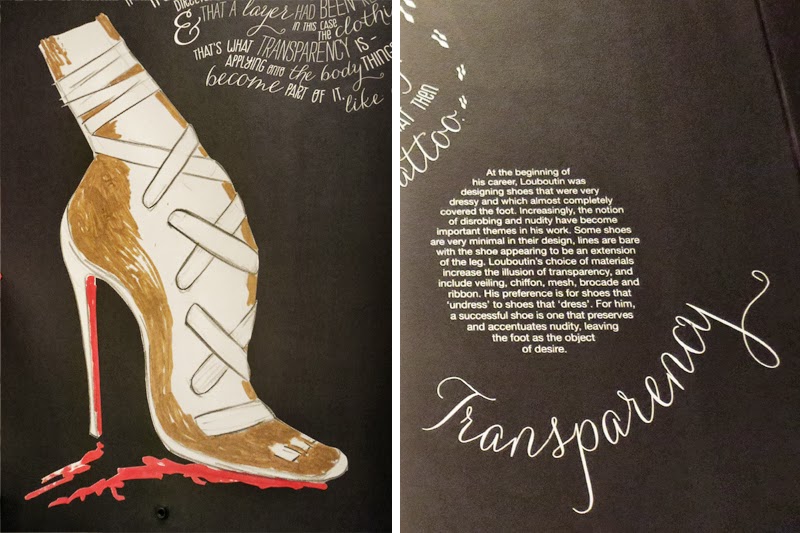 & THAT A layer HAD BEEN
IN THIS CASE
THE clothy
THAT'S WHAT TRANSPARENCY IS –
APPLYING ONTO the body THINGS
become PART OF IT,
like
THEN
tattoo.
At the beginning of
his career, Louboutin was
designing shoes that were very
dressy and which almost completely
covered the foot. Increasingly, the notion
of disrobing and nudity have become
important themes in his work. Some shoes
are very minimal in their design, lines are bare
with the shoe appearing to be an extension
of the leg. Louboutin's choice of materials
increase the illusion of transparency, and
include veiling, chiffon, mesh, brocade and
ribbon. His preference is for shoes that
'undress' to shoes that 'dress'. For him,
a successful shoe is one that preserves
and accentuates nudity, leaving
the foot as the object
of desire.
Transparency